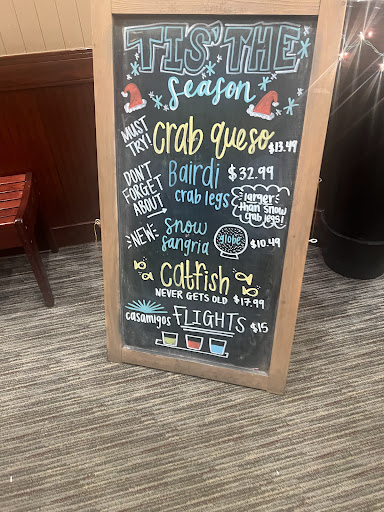 TIS' THE
Season
MUST TRY! Crab queso $13.49
DON'T FORGET ABOUT Bairdi crab legs $32.99
larger than snow crab legs!
NEW! snow sangria globe $10.49
Catfish
NEVER GETS OLD $17.99
casamigos FLIGHTS $15